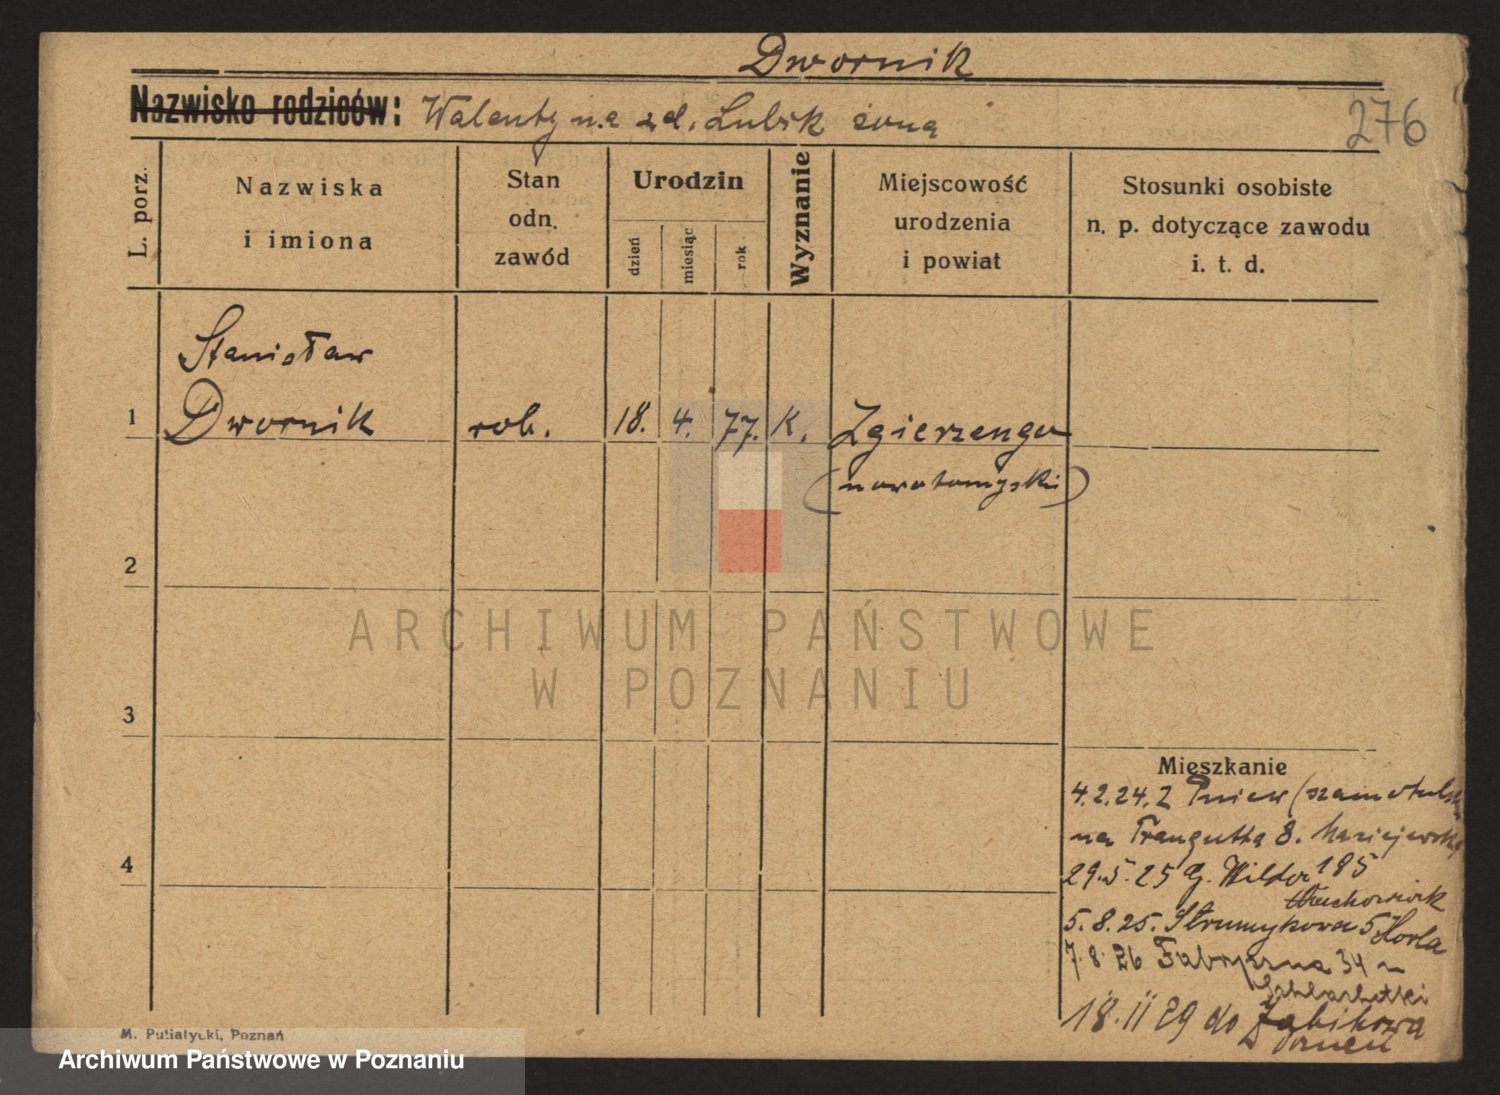 Dwornik
Nazwisko rodziców: Walenty u.e zd. Lubik żona
276
L. porz.
Nazwiska
i imiona
Stan
odn.
zawód
Urodzin
dzień
miesiąc
rok
Wyznanie
Miejscowość
urodzenia
i powiat
Stosunki osobiste
n. p. dotyczące zawodu
i. t. d.
Stanisław
1 Dwornik rob. 18. 4. 77. K. Zgierzengo
(nowotomyski)
2
ARCHIWUM PAŃSTWOWE
W POZNANIU
3
Mieszkanie
4.2.24. Z Pniew (szamotulsk
na Traugutta 8. Maciejewska
4
29.5.25 G. Wilda 185
5.8.25. Strumykowa 5 Horla
7.8.26 Fabryczna 34
18.II 29 do Żabikowa
M. Putiatycki, Poznań
Archiwum Państwowe w Poznaniu